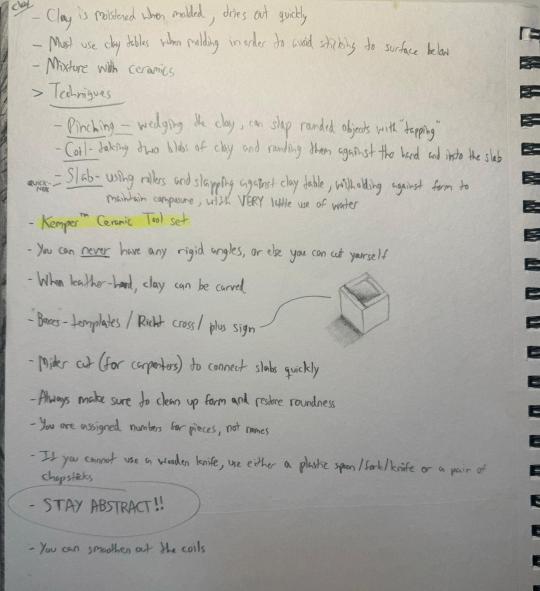 Clay
- Clay is moistened when molded, dries out quickly
- Must use clay tables when molding in order to avoid sticking to surface below
- Mixture with ceramics
> Techniques
- Pinching - wedging the clay, can slap rounded objects with "tapping"
- Coil - taking two blobs of clay and rounding them against the hand and into the slab
QUICK-
- Slab - using rollers and slapping against clay table, witholding against form to
maintain composure, with VERY little use of water
- Kemper™ Ceramic Tool set
- You can never have any rigid angles, or else you can cut yourself
- When leather-hard, clay can be carved
- "Boxes" - templates / Right cross / plus sign
- Miter cut (for carpenters) to connect slabs quickly
- Always make sure to clean up form and restore roundness
- You are assigned numbers for pieces, not names
- If you cannot use a wooden knife, use either a plastic spoon/fork/knife or a pair of
chopsticks
- STAY ABSTRACT!!
- You can smoothen out the coils